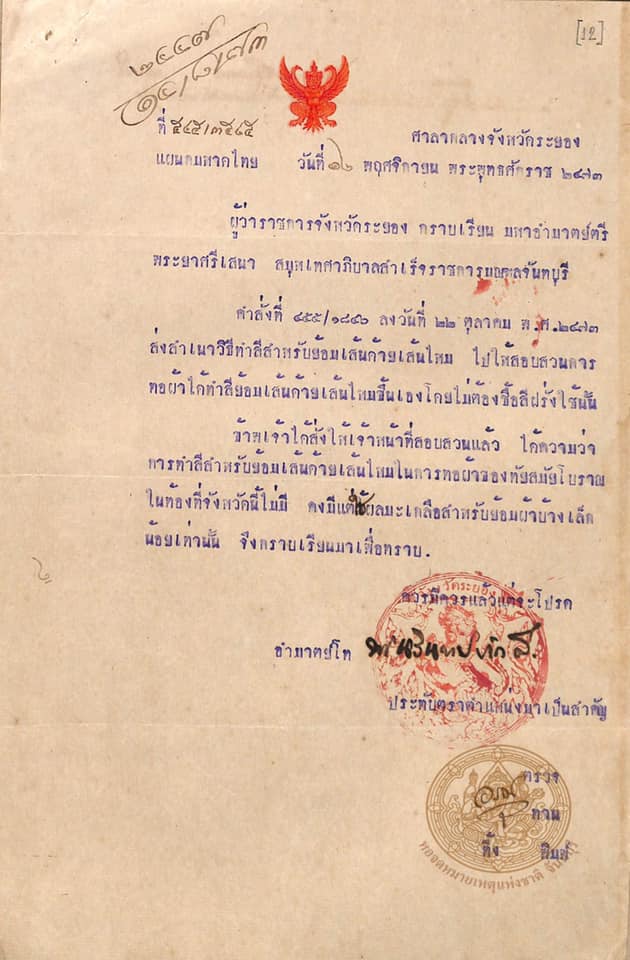 [12]
๒๔๔๗
๑๔/๘/๗๓
ที่ ๕๔๕/๓๕๔๕
ศาลากลางจังหวัดระยอง
แผนกมหาดไทย วันที่ ๑๖ พฤศจิกายน พระพุทธศักราช ๒๔๗๓
ผู้ว่าราชการจังหวัดระยอง กราบเรียน มหาอำมาตย์ตรี
พระยาศรีเสนา สมุหเทศาภิบาลสำเร็จราชการมณฑลจันทบุรี
คำสั่งที่ ๔๕๕/๑๘๔๖ ลงวันที่ ๒๒ ตุลาคม พ.ศ.๒๔๗๓
ส่งสำเนาวิธีทำสีสำหรับย้อมเส้นด้ายเส้นไหม ไปให้สอบสวนการ
ทอผ้าได้ทำสีย้อมเส้นด้ายเส้นไหมขึ้นเองโดยไม่ต้องซื้อสีฝรั่งใช้นั้น
ข้าพเจ้าได้สั่งให้เจ้าหน้าที่สอบสวนแล้ว ได้ความว่า
การทำสีสำหรับย้อมเส้นด้ายเส้นไหมในการทอผ้าของทัยสมัยโบราณ
ในท้องที่จังหวัดนี้ไม่มี คงมีแต่ใช้ผลมะเกลือสำหรับย้อมผ้าบ้างเล็ก
น้อยเท่านั้น จึงกราบเรียนมาเพื่อทราบ.
ควรมีควรแล้วแต่จะโปรด
อำมาตย์โท
ประทับตราตำแหน่งมาเป็นสำคัญ
วัดระยอง
ตรวจ
ทาน
พิมพ์
หอจดหมายเหตุแห่งชาติ จันทบุรี